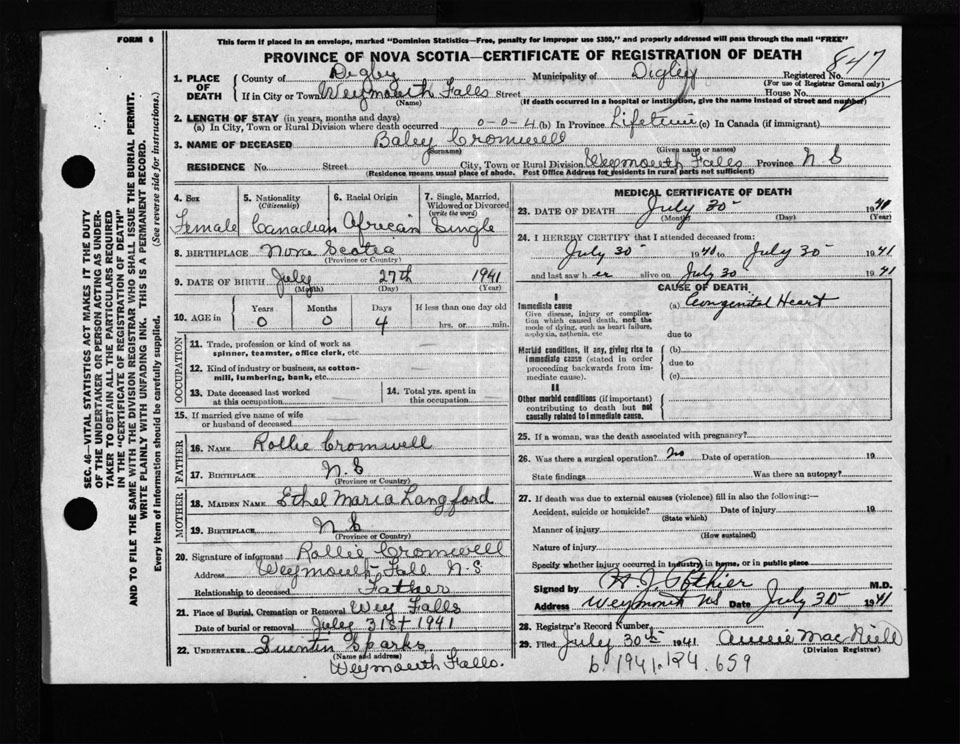 FORM 6
This form if placed in an envelope, marked "Dominion Statistics—Free, penalty for improper use $300," and properly addressed will pass through the mail "FREE"
PROVINCE OF NOVA SCOTIA—CERTIFICATE OF REGISTRATION OF DEATH
847
1. PLACE OF DEATH
County of Digby Municipality of Digby Registered No.
(For use of Registrar General only)
If in City or Town Weymouth Falls Street House No.
(Name) (If death occurred in a hospital or institution, give the name instead of street and number)
2. LENGTH OF STAY (in years, months and days)
(a) In City, Town or Rural Division where death occurred 0-0-4 (b) In Province Lifetime (c) In Canada (if immigrant)
3. NAME OF DECEASED Baby Cromwell
(Surname) (Given name or names)
RESIDENCE No. Street City, Town or Rural Division Weymouth Falls Province N S
(Residence means usual place of abode. Post Office Address for residents in rural parts not sufficient)
4. Sex 5. Nationality (Citizenship) 6. Racial Origin 7. Single, Married, Widowed or Divorced (write the word)
Female Canadian African Single
8. BIRTHPLACE Nova Scotia
(Province or Country)
9. DATE OF BIRTH July 27th 1941
(Month) (Day) (Year)
10. AGE in Years Months Days If less than one day old
0 0 4 hrs. or min.
OCCUPATION
11. Trade, profession or kind of work as spinner, teamster, office clerk, etc.
12. Kind of industry or business, as cotton-mill, lumbering, bank, etc.
13. Date deceased last worked at this occupation 14. Total yrs. spent in this occupation
15. If married give name of wife or husband of deceased
FATHER
16. NAME Rollie Cromwell
17. BIRTHPLACE N. S
(Province or Country)
MOTHER
18. MAIDEN NAME Ethel Maria Langford
19. BIRTHPLACE N S
(Province or Country)
20. Signature of informant Rollie Cromwell
Address Weymouth Fall N-S
Relationship to deceased Father
21. Place of Burial, Cremation or Removal Wey Falls
Date of burial or removal July 31st 1941
22. UNDERTAKER Quentin Sparks
(Name and address)
Weymouth Falls.
MEDICAL CERTIFICATE OF DEATH
23. DATE OF DEATH July 30 19
(Month) (Day) (Year)
24. I HEREBY CERTIFY that I attended deceased from:
July 30 19 to July 30 1941
and last saw her alive on July 30 1941
CAUSE OF DEATH
I
Immediate cause
Give disease, injury or complication which caused death, not the mode of dying, such as heart failure, asphyxia, asthenia, etc
(a) Congenital Heart
due to
Morbid conditions, if any, giving rise to immediate cause (stated in order proceeding backwards from immediate cause).
(b)
due to
(c)
II
Other morbid conditions (if important) contributing to death but not causally related to immediate cause.
25. If a woman, was the death associated with pregnancy?
26. Was there a surgical operation? No Date of operation 19
State findings Was there an autopsy?
27. If death was due to external causes (violence) fill in also the following:—
Accident, suicide or homicide? Date of injury 19
(State which)
Manner of injury
(How sustained)
Nature of injury
Specify whether injury occurred in industry, in home, or in public place
Signed by H. J. Pothier M.D.
Address Weymouth NS Date July 30 1941
28. Registrar's Record Number
29. Filed July 30th 1941 Annie MacNiell
(Division Registrar)
b. 1941.124.659
SEC. 46—VITAL STATISTICS ACT MAKES IT THE DUTY
OF THE UNDERTAKER OR PERSON ACTING AS UNDER-
TAKER TO OBTAIN ALL THE PARTICULARS REQUIRED
IN THE "CERTIFICATE OF REGISTRATION OF DEATH"
AND TO FILE THE SAME WITH THE DIVISION REGISTRAR WHO SHALL ISSUE THE BURIAL PERMIT.
WRITE PLAINLY WITH UNFADING INK. THIS IS A PERMANENT RECORD.
Every item of information should be carefully supplied. (See reverse side for instructions.)